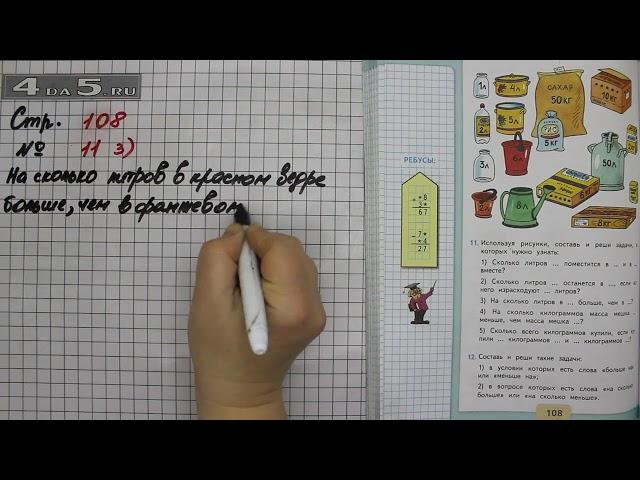 4DA5.RU
Стр. 108
№ 11 3)
На сколько литров в красном ведре
больше, чем в оранжевом
РЕБУСЫ:
+ *8
3*
67
- 7*
*4
27
1л
4л
САХАР
50 КГ
10 КГ
2л
5л
РИС
5 КГ
6л
50л
3л
6 КГ
2л
8л
8 КГ
11. Используя рисунки, составь и реши задачи, в
которых нужно узнать:
1) Сколько литров ... поместится в ... и в ...
вместе?
2) Сколько литров ... останется в ..., если из
него израсходуют ... литров?
3) На сколько литров в ... больше, чем в ...?
4) На сколько килограммов масса мешка ...
меньше, чем масса мешка ...?
5) Сколько всего килограммов купили, если ку-
пили ... килограммов ... и ... килограммов ...?
12. Составь и реши такие задачи:
1) в условии которых есть слова «больше на»
или «меньше на»;
2) в вопросе которых есть слова «на сколько
больше» или «на сколько меньше».
108